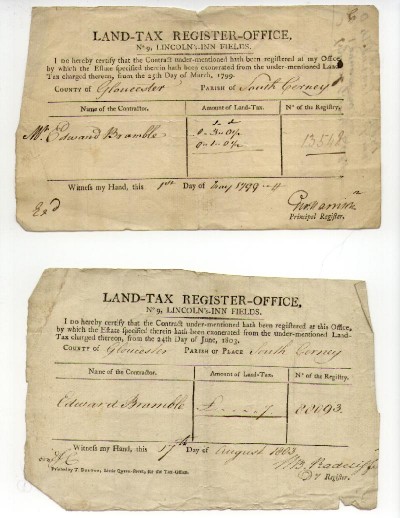 LAND-TAX REGISTER-OFFICE,
Nº 9, LINCOLN'S-INN FIELDS.
I DO hereby certify that the Contract under-mentioned hath been registered at my Office,
by which the Estate specified therein hath been exonerated from the under-mentioned Land-
Tax charged thereon, from the 25th Day of March, 1799.
COUNTY OF Gloucester PARISH OF South Cerney
Name of the Contractor. Amount of Land-Tax. Nº of the Registry.
Mr. Edward Bramble
WITNESS my Hand, this 1st Day of May 1799
Principal Register.
LAND-TAX REGISTER-OFFICE,
Nº 9, LINCOLN'S-INN FIELDS.
I do hereby certify that the Contract under-mentioned hath been registered at this Office,
by which the Estate specified therein hath been exonerated from the under-mentioned Land-
Tax charged thereon, from the 24th Day of June, 1803.
COUNTY OF Gloucester PARISH OF PLACE South Cerney
Name of the Contractor. Amount of Land-Tax. Nº of the Registry.
Edward Bramble £ 7
Witness my Hand, this 17th Day of August 1803
Dy Register.
Printed by T. for the Tax-Office.